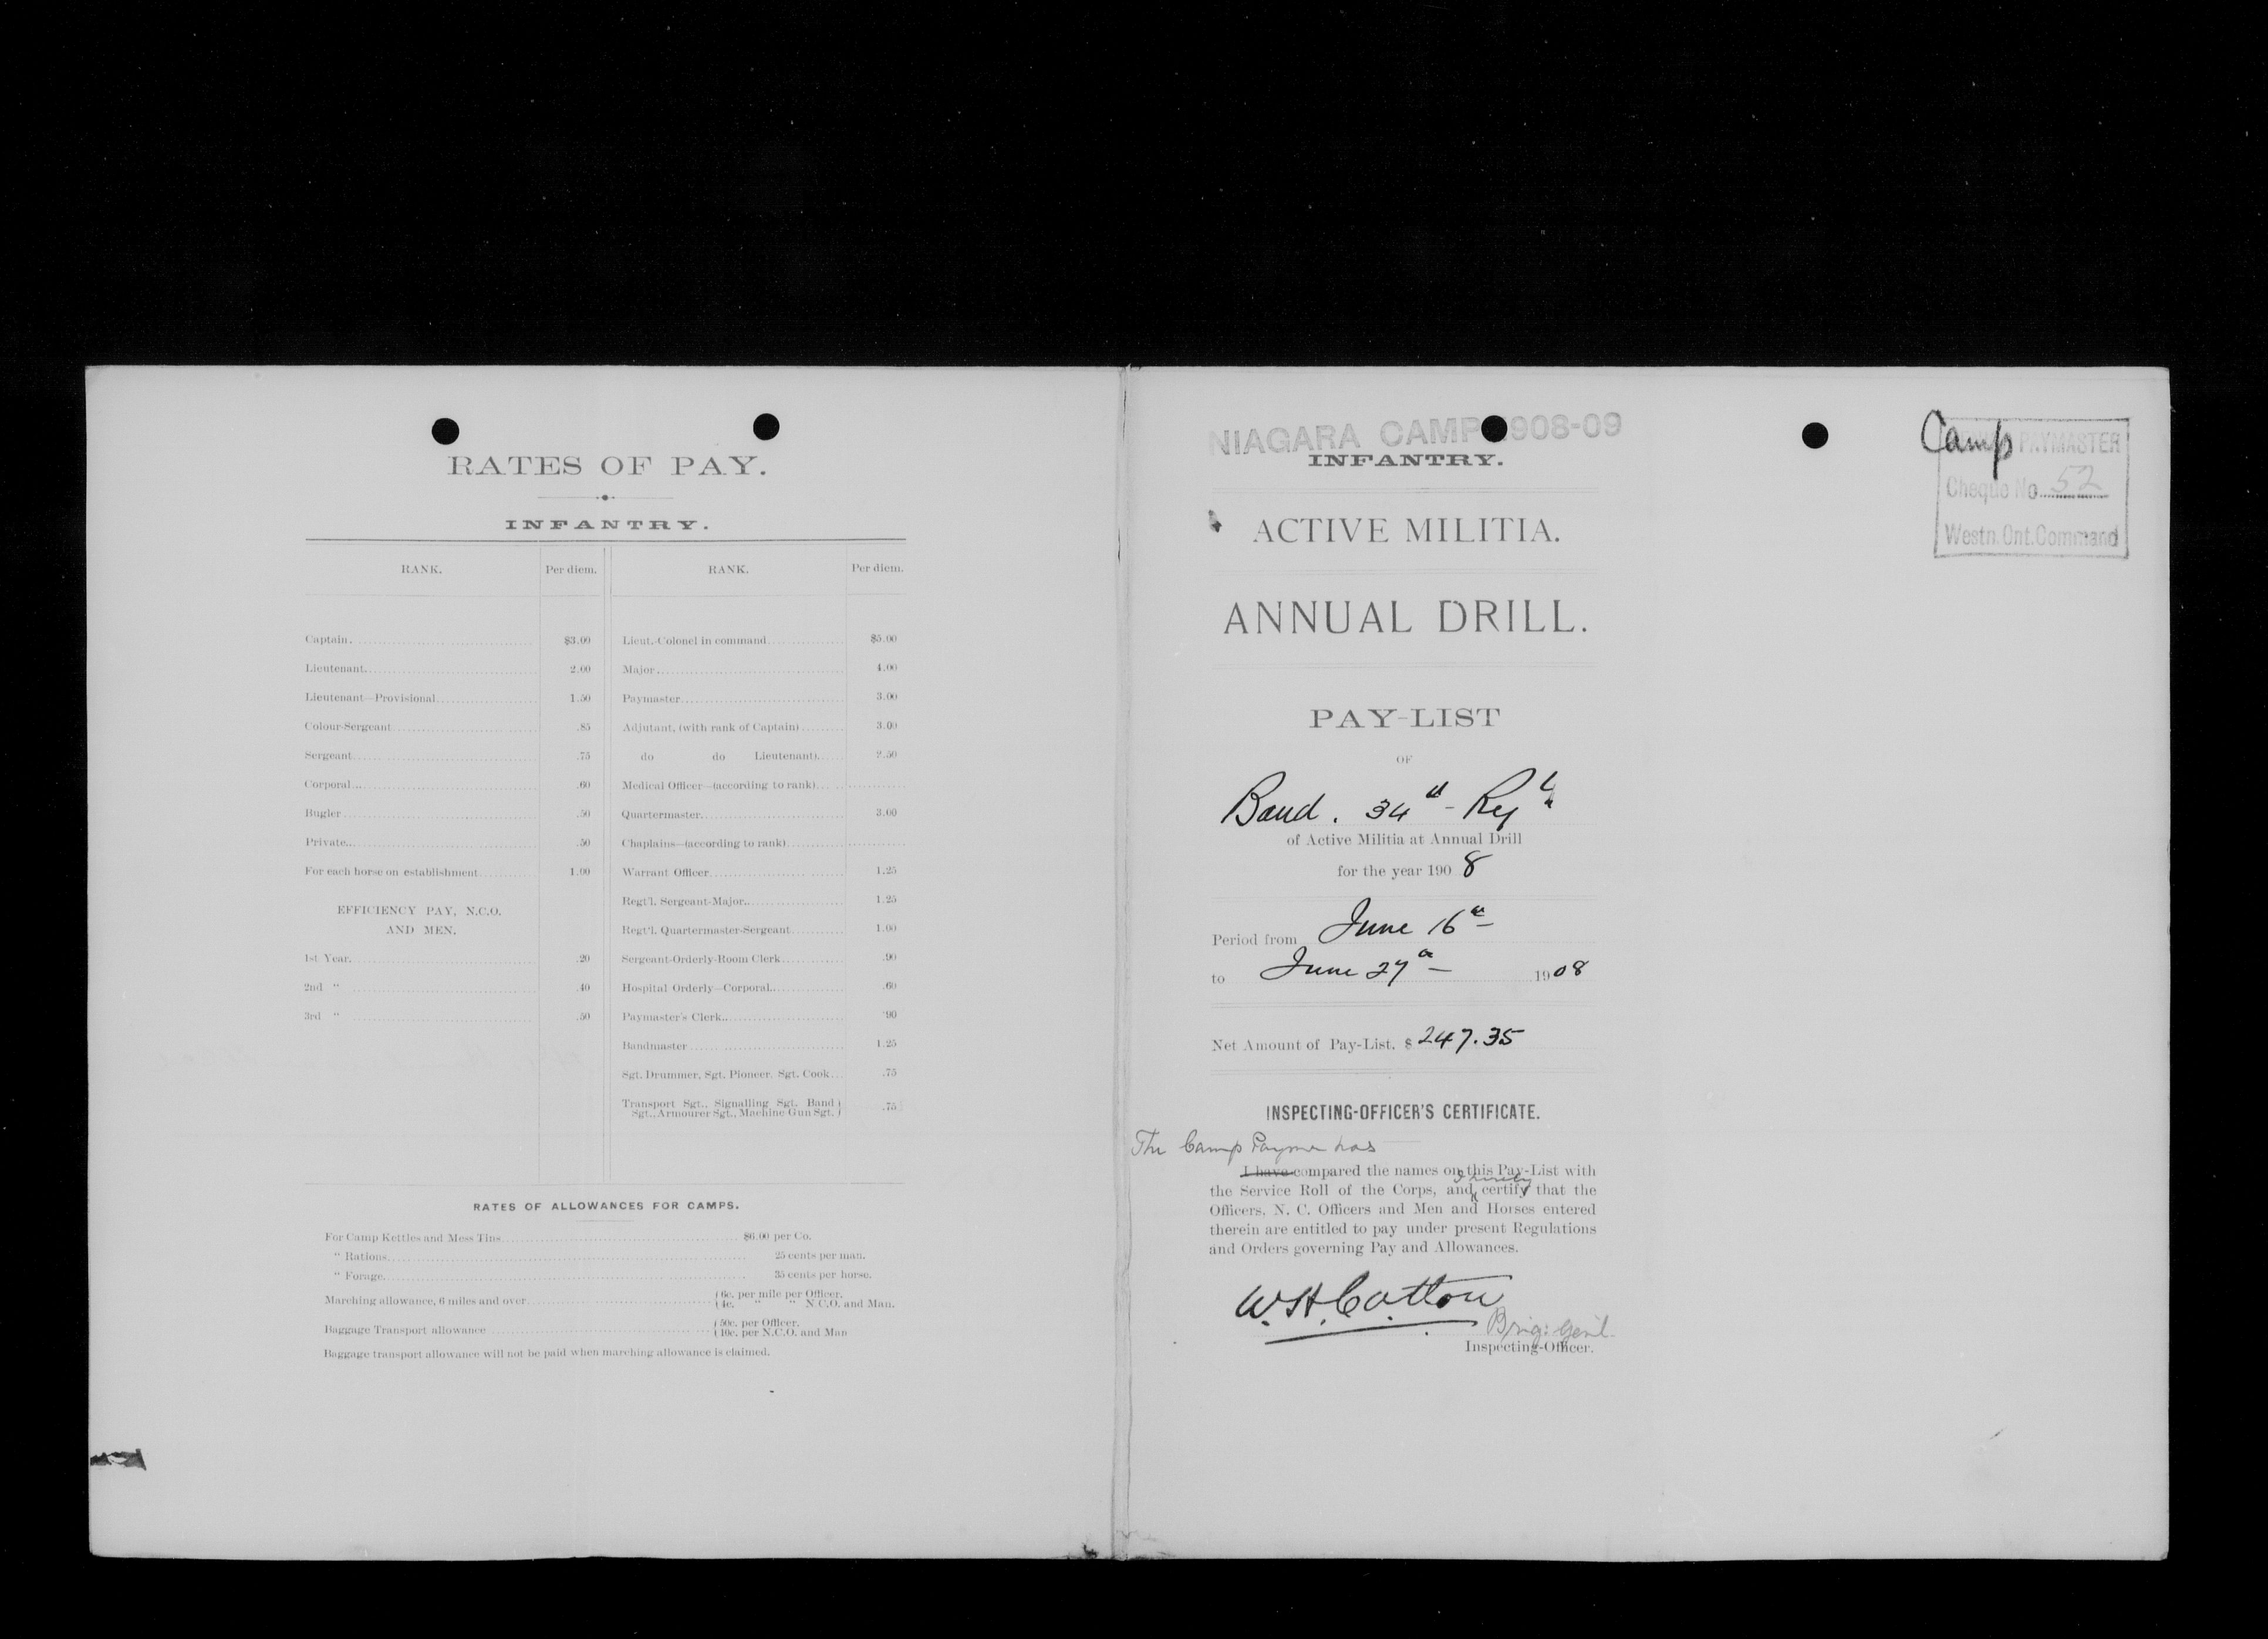 RATES OF PAY.
INFANTRY.
RANK. Per diem. RANK. Per diem.
Captain. $3.00 Lieut.-Colonel in command $5.00
Lieutenant. 2.00 Major 4.00
Lieutenant—Provisional 1.50 Paymaster 3.00
Colour-Sergeant .85 Adjutant, (with rank of Captain) 3.00
Sergeant .75 do do Lieutenant) 2.50
Corporal .60 Medical Officer—(according to rank)
Bugler .50 Quartermaster 3.00
Private .50 Chaplains—(according to rank)
For each horse on establishment 1.00 Warrant Officer 1.25
EFFICIENCY PAY, N.C.O.
AND MEN.
Regt'l. Sergeant-Major 1.25
Regt'l. Quartermaster-Sergeant 1.00
1st Year. .20 Sergeant-Orderly-Room Clerk .90
2nd " .40 Hospital Orderly—Corporal .60
3rd " .50 Paymaster's Clerk '90
Bandmaster 1.25
Sgt. Drummer, Sgt. Pioneer, Sgt. Cook .75
Transport Sgt., Signalling Sgt. Band
Sgt., Armourer Sgt., Machine Gun Sgt. .75
RATES OF ALLOWANCES FOR CAMPS.
For Camp Kettles and Mess Tins $6.00 per Co.
" Rations 25 cents per man.
" Forage 35 cents per horse.
Marching allowance, 6 miles and over 6c. per mile per Officer.
4c. " " N.C.O. and Man.
Baggage Transport allowance 50c. per Officer.
10c. per N.C.O. and Man
Baggage transport allowance will not be paid when marching allowance is claimed.
NIAGARA CAMP 908-09
INFANTRY.
ACTIVE MILITIA.
ANNUAL DRILL.
PAY-LIST
OF
Band. 34th Regt
of Active Militia at Annual Drill
for the year 1908
Period from June 16th
to June 27th 1908
Net Amount of Pay-List. $247.35
INSPECTING-OFFICER'S CERTIFICATE.
The Camp Paymr has
I have compared the names on this Pay-List with
the Service Roll of the Corps, and I hereby certify that the
Officers, N. C. Officers and Men and Horses entered
therein are entitled to pay under present Regulations
and Orders governing Pay and Allowances.
W.H. Cotton
Brig: Genl.
Inspecting-Officer.
Camp
PAYMASTER
Cheque No. 52
Westn. Ont. Command